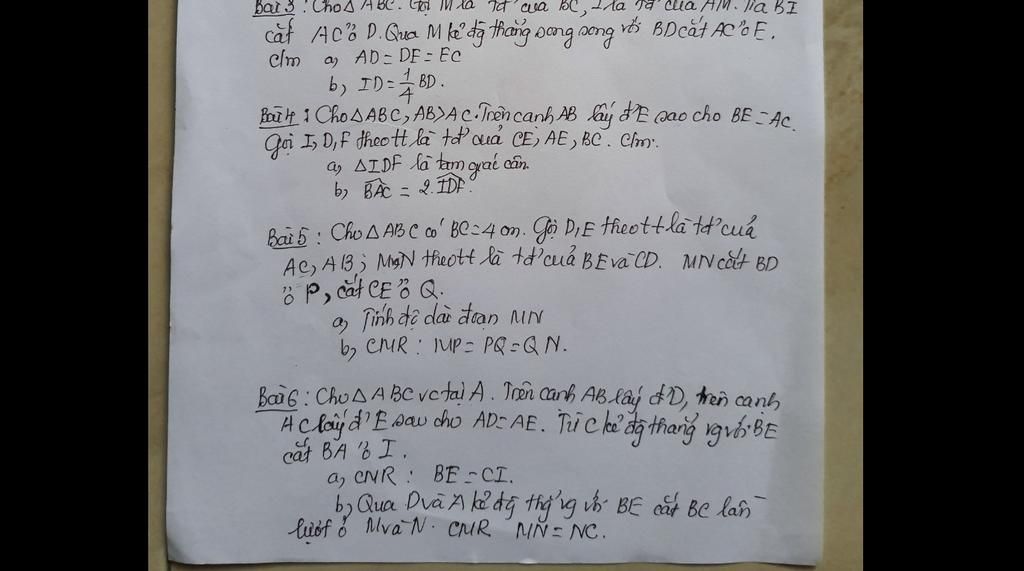 Bài 3 : Cho △ ABC. Gọi M là tđ' của BC, I là tđ' của AM. Tia BI
cắt AC ở D. Qua M kẻ đg thẳng song song với BD cắt AC ở E.
C/m a, AD = DE = EC
b, ID = 1/4 BD.
Bài 4 : Cho △ ABC, AB > AC. Trên cạnh AB lấy đ' E sao cho BE = AC.
Gọi I, D, F theo tt là tđ' quả CE, AE, BC. C/m.
a, △ IDF là tam giác cân.
b, \widehat{BAC} = 2. \widehat{IDF}.
Bài 5 : Cho △ ABC có BC = 4 cm. Gọi D, E theo tt là tđ' của
AC, AB ; M, N theo tt là tđ' của BE và CD. MN cắt BD
ở P, cắt CE ở Q.
a, Tính độ dài đoạn MN
b, CMR : MP = PQ = QN.
Bài 6 : Cho △ ABC vc tại A. Trên cạnh AB lấy đ' D, trên cạnh
AC lấy đ' E sao cho AD = AE. Từ C kẻ đg thẳng vg với BE
cắt BA ở I.
a, CMR : BE = CI.
b, Qua D và A kẻ đg thg vg với BE cắt BC lần
lượt ở M và N. CMR MN = NC.